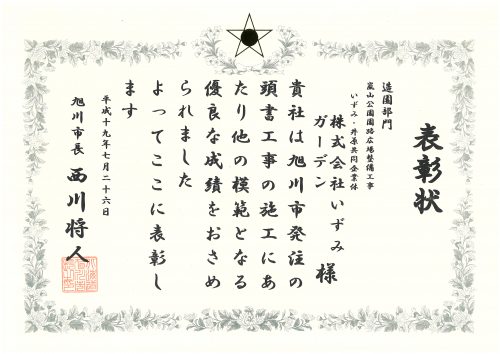 表彰状
造園部門
嵐山公園園路広場整備工事
いずみ・井原共同企業体
株式会社いずみ
ガーデン 様
貴社は旭川市発注の
頭書工事の施工にあ
たり他の模範となる
優良な成績をおさめ
られました
よってここに表彰し
ます
平成十九年七月二十六日
旭川市長 西川将人